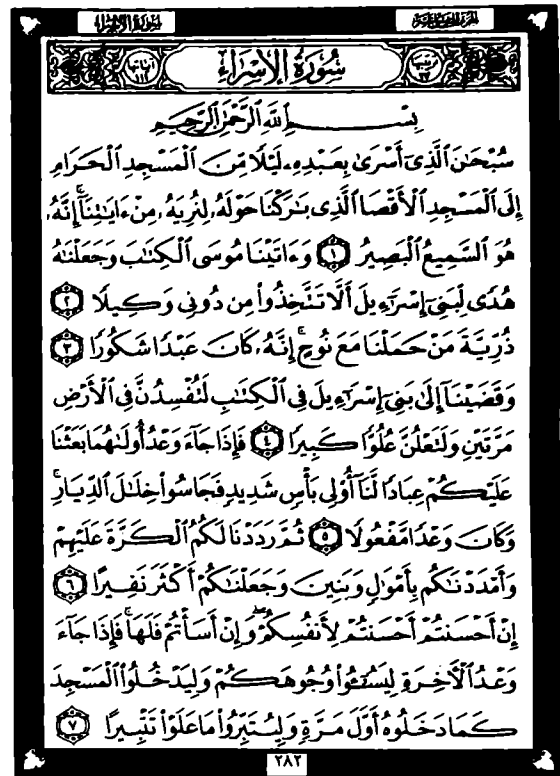 سُورَةُ الإِسْرَاءِ الجزء الخامس عشر
ترتيبها ١٧ سُورَةُ الإِسْرَاءِ آياتها ١١١
بِسْمِ اللَّهِ الرَّحْمَٰنِ الرَّحِيمِ
سُبْحَٰنَ ٱلَّذِىٓ أَسْرَىٰ بِعَبْدِهِۦ لَيْلًا مِّنَ ٱلْمَسْجِدِ ٱلْحَرَامِ
إِلَى ٱلْمَسْجِدِ ٱلْأَقْصَا ٱلَّذِى بَٰرَكْنَا حَوْلَهُۥ لِنُرِيَهُۥ مِنْ ءَايَٰتِنَآ ۚ إِنَّهُۥ
هُوَ ٱلسَّمِيعُ ٱلْبَصِيرُ ١ وَءَاتَيْنَا مُوسَى ٱلْكِتَٰبَ وَجَعَلْنَٰهُ
هُدًى لِّبَنِىٓ إِسْرَٰٓءِيلَ أَلَّا تَتَّخِذُوا۟ مِن دُونِى وَكِيلًا ٢
ذُرِّيَّةَ مَنْ حَمَلْنَا مَعَ نُوحٍ ۚ إِنَّهُۥ كَانَ عَبْدًا شَكُورًا ٣
وَقَضَيْنَآ إِلَىٰ بَنِىٓ إِسْرَٰٓءِيلَ فِى ٱلْكِتَٰبِ لَتُفْسِدُنَّ فِى ٱلْأَرْضِ
مَرَّتَيْنِ وَلَتَعْلُنَّ عُلُوًّا كَبِيرًا ٤ فَإِذَا جَآءَ وَعْدُ أُولَىٰهُمَا بَعَثْنَا
عَلَيْكُمْ عِبَادًا لَّنَآ أُو۟لِى بَأْسٍ شَدِيدٍ فَجَاسُوا۟ خِلَٰلَ ٱلدِّيَارِ ۚ
وَكَانَ وَعْدًا مَّفْعُولًا ٥ ثُمَّ رَدَدْنَا لَكُمُ ٱلْكَرَّةَ عَلَيْهِمْ
وَأَمْدَدْنَٰكُم بِأَمْوَٰلٍ وَبَنِينَ وَجَعَلْنَٰكُمْ أَكْثَرَ نَفِيرًا ٦
إِنْ أَحْسَنتُمْ أَحْسَنتُمْ لِأَنفُسِكُمْ ۖ وَإِنْ أَسَأْتُمْ فَلَهَا ۚ فَإِذَا جَآءَ
وَعْدُ ٱلْأَخِرَةِ لِيَسُۥٓـُٔوا۟ وُجُوهَكُمْ وَلِيَدْخُلُوا۟ ٱلْمَسْجِدَ
كَمَا دَخَلُوهُ أَوَّلَ مَرَّةٍ وَلِيُتَبِّرُوا۟ مَا عَلَوْا۟ تَتْبِيرًا ٧
٢٨٢